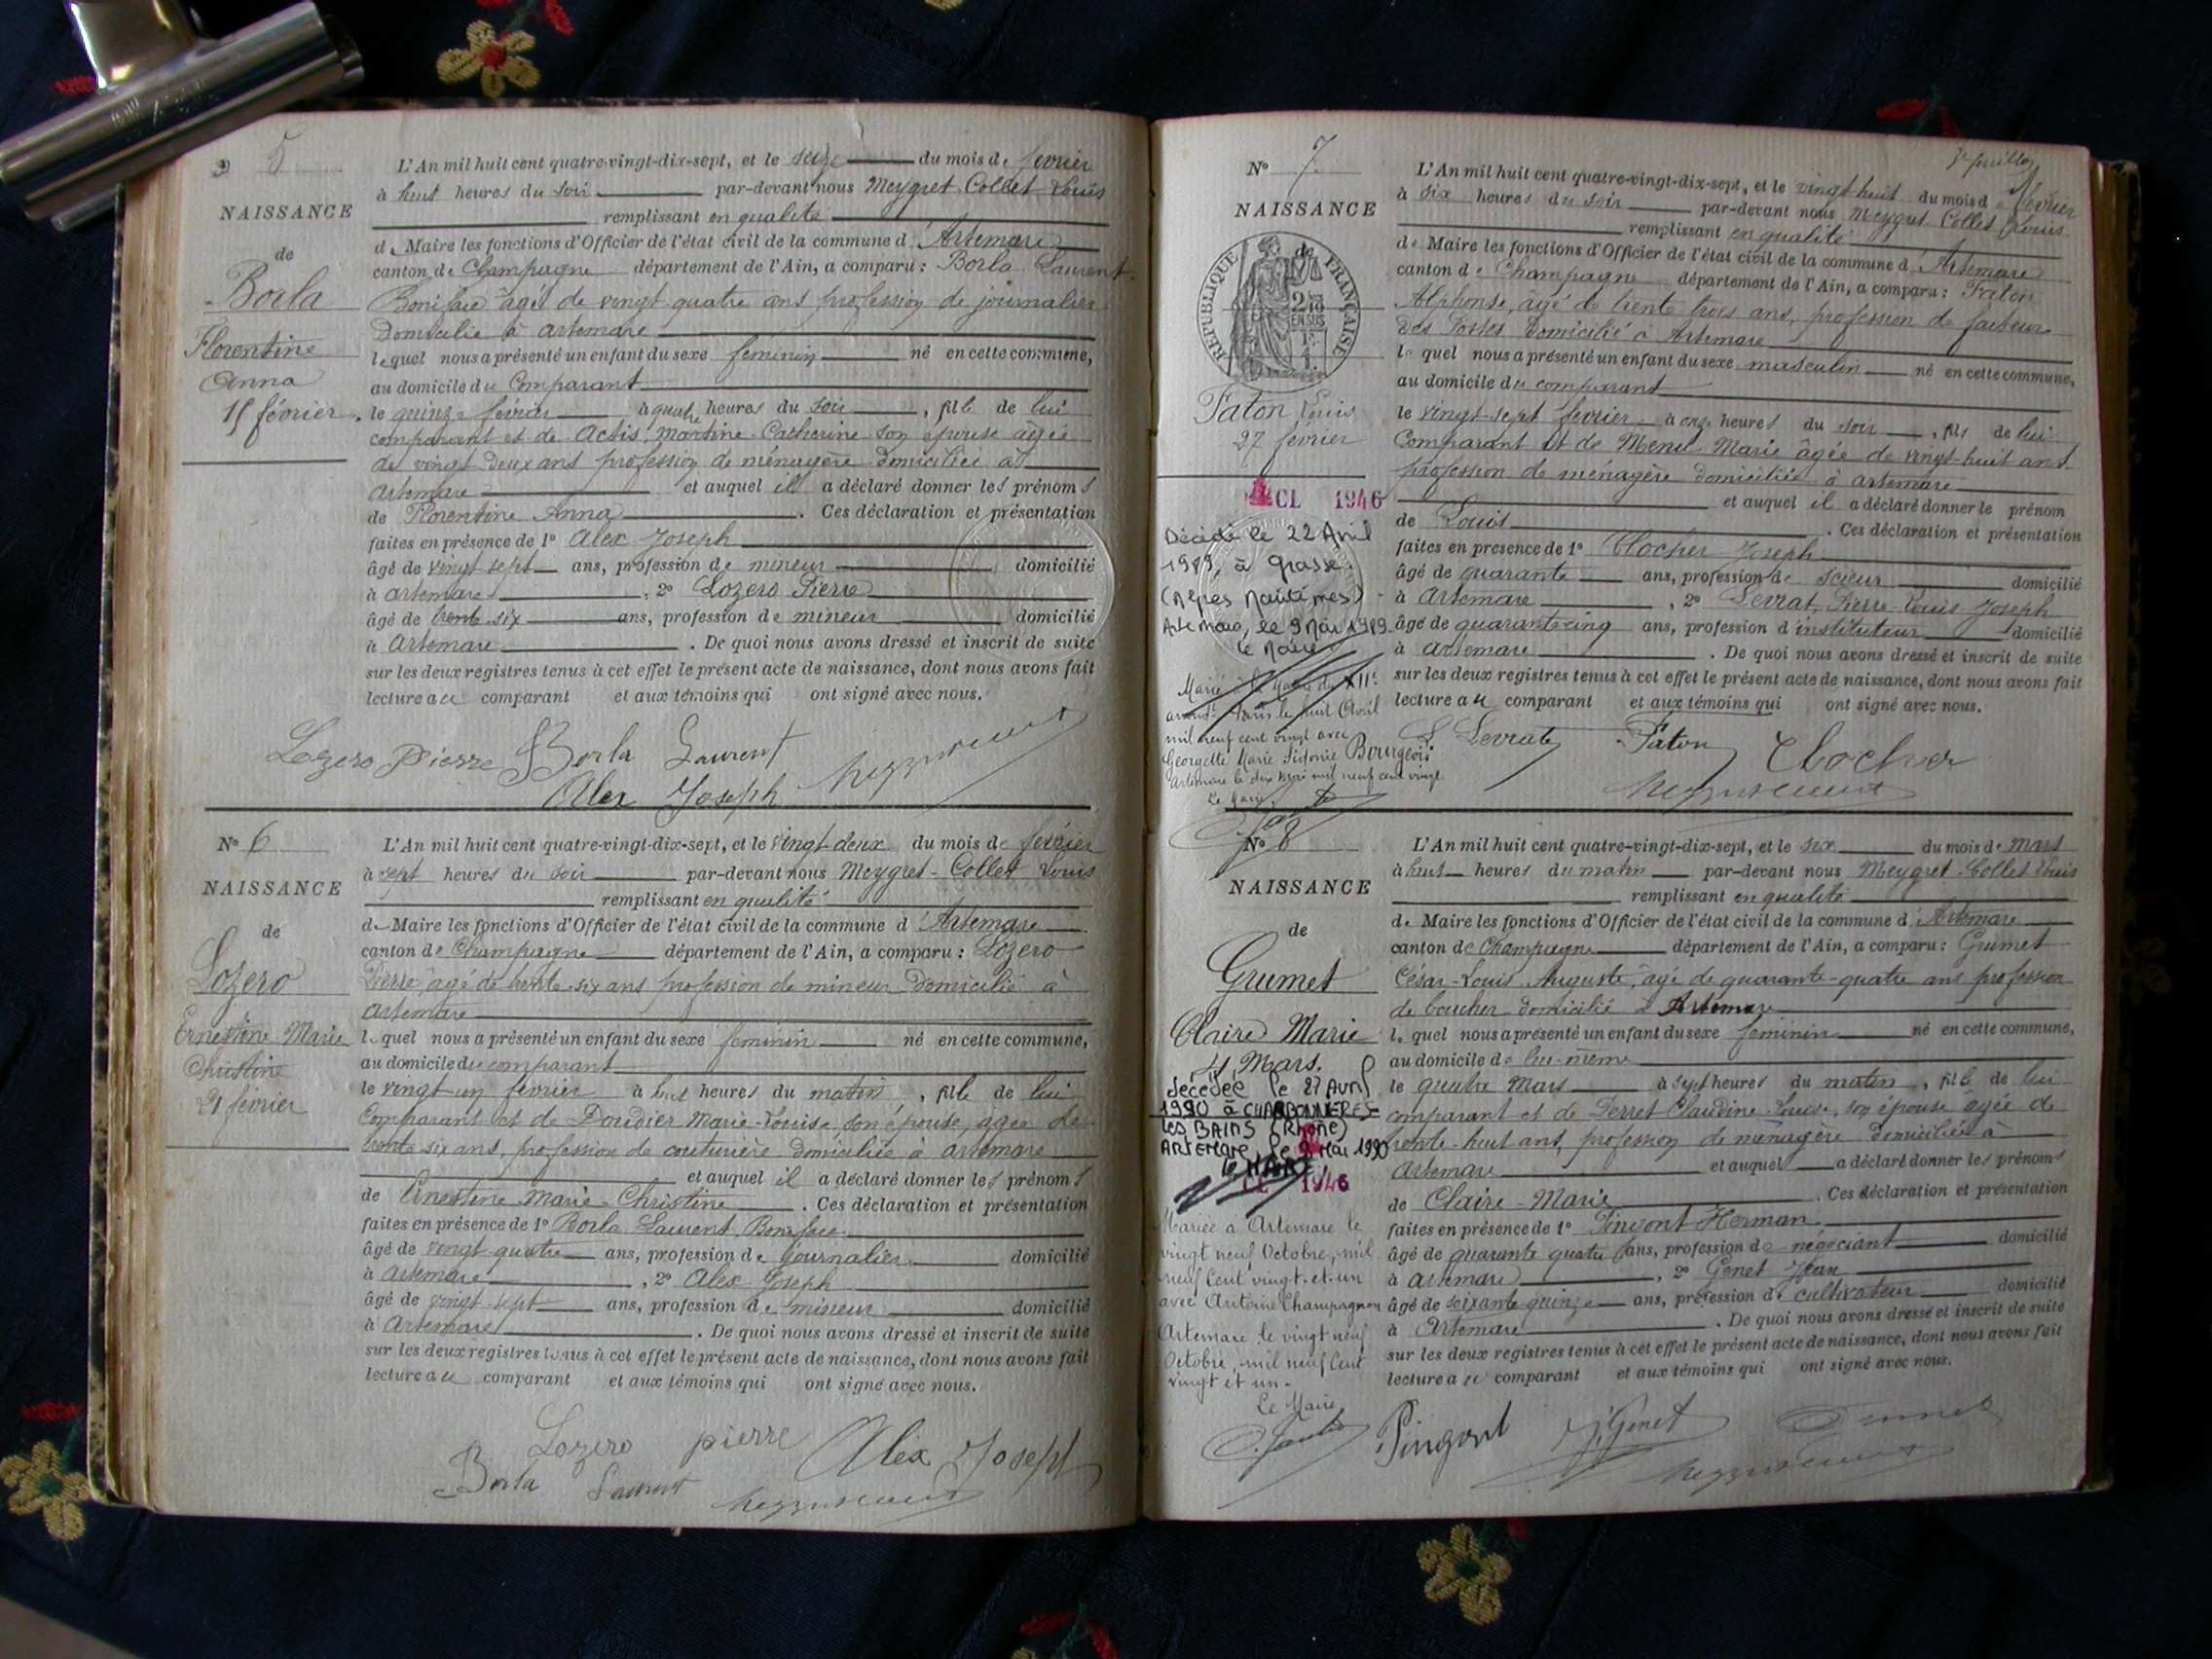 5
NAISSANCE
de
Borla
Florentine
Anna
15 février
L'An mil huit cent quatre-vingt-dix-sept, et le seize du mois de février
à huit heures du soir par-devant nous Meygret-Collet Louis
remplissant en qualité
de Maire les fonctions d'Officier de l'état civil de la commune d'Artemare
canton de Champagne département de l'Ain, a comparu : Borla Laurent
Boniface âgé de vingt quatre ans profession de journalier
domicilié à artemare
lequel nous a présenté un enfant du sexe féminin né en cette commune,
au domicile du Comparant
le quinze février à quatre heures du soir, fille de lui
comparant et de Actis Martine Catherine son épouse âgée
de vingt deux ans profession de ménagère domiciliée à
Artemare et auquel il a déclaré donner les prénoms
de Florentine Anna. Ces déclaration et présentation
faites en présence de 1° Alex Joseph
âgé de vingt sept ans, profession de mineur domicilié
à artemare, 2° Lozero Pierre
âgé de trente six ans, profession de mineur domicilié
à Artemare. De quoi nous avons dressé et inscrit de suite
sur les deux registres tenus à cet effet le présent acte de naissance, dont nous avons fait
lecture au comparant et aux témoins qui ont signé avec nous.
Lozero Pierre Borla Laurent
Alex Joseph
N° 6
NAISSANCE
de
Lozero
Ernestine Marie
Christine
21 février
L'An mil huit cent quatre-vingt-dix-sept, et le vingt-deux du mois de février
à sept heures du soir par-devant nous Meygret-Collet Louis
remplissant en qualité
de Maire les fonctions d'Officier de l'état civil de la commune d'Artemare
canton de Champagne département de l'Ain, a comparu : Lozero
Pierre, âgé de trente-six ans profession de mineur domicilié à
Artemare
lequel nous a présenté un enfant du sexe féminin né en cette commune,
au domicile du comparant
le vingt un février à huit heures du matin, fille de lui
Comparant et de Doudier Marie-Louise, son épouse, âgée de
trente six ans, profession de couturière domiciliée à artemare
et auquel il a déclaré donner les prénoms
de Ernestine Marie-Christine. Ces déclaration et présentation
faites en présence de 1° Borla Laurent Boniface
âgé de vingt quatre ans, profession de journalier domicilié
à Artemare, 2° Alex Joseph
âgé de vingt sept ans, profession de mineur domicilié
à Artemare. De quoi nous avons dressé et inscrit de suite
sur les deux registres tenus à cet effet le présent acte de naissance, dont nous avons fait
lecture au comparant et aux témoins qui ont signé avec nous.
Lozero pierre Alex Joseph
Borla Laurent
N° 7
NAISSANCE
de
RÉPUBLIQUE FRANÇAISE
EN SUS
Faton Louis
27 février
CL 1946
Décédé le 22 Avril
1989, à Grasse
(Alpes Maritimes)
Artemare, le 9 Mai 1989
Le Maire
Marié à la Mairie du XIIe
arrondt Paris le huit Avril
mil neuf cent vingt avec
Georgette Marie Sidonie Bourgeois
Artemare le dix Mai mil neuf cent vingt
Le Maire,
L'An mil huit cent quatre-vingt-dix-sept, et le vingt huit du mois de février
à six heures du soir par-devant nous Meygret-Collet Louis
remplissant en qualité
de Maire les fonctions d'Officier de l'état civil de la commune d'Artemare
canton de Champagne département de l'Ain, a comparu : Faton
Alphonse, âgé de trente trois ans, profession de facteur
des Postes domicilié à Artemare
lequel nous a présenté un enfant du sexe masculin né en cette commune,
au domicile du comparant
le vingt-sept février à onze heures du soir, fils de lui
Comparant et de Menu Marie âgée de vingt-huit ans
profession de ménagère domiciliée à artemare
et auquel il a déclaré donner le prénom
de Louis. Ces déclaration et présentation
faites en présence de 1° Clocher Joseph
âgé de quarante ans, profession de scieur domicilié
à Artemare, 2° Levrat Pierre Louis Joseph
âgé de quarante cinq ans, profession d'instituteur domicilié
à Artemare. De quoi nous avons dressé et inscrit de suite
sur les deux registres tenus à cet effet le présent acte de naissance, dont nous avons fait
lecture au comparant et aux témoins qui ont signé avec nous.
L Levrat Faton Clocher
N° 8
NAISSANCE
de
Grumet
Claire Marie
4 Mars.
décédée le 27 Avril
1990 à CHARBONNIERES
les BAINS (Rhône)
Artemare, le 2 Mai 1990
le MAIRE,
CL 1946
Mariée à Artemare le
vingt neuf Octobre, mil
neuf Cent vingt-et-un
avec Antoine Champagnon
Artemare le vingt neuf
Octobre, mil neuf Cent
vingt et un -
Le Maire,
L'An mil huit cent quatre-vingt-dix-sept, et le six du mois de mars
à huit heures du matin par-devant nous Meygret-Collet Louis
remplissant en qualité
de Maire les fonctions d'Officier de l'état civil de la commune d'Artemare
canton de Champagne département de l'Ain, a comparu : Grumet
César-Louis Auguste, âgé de quarante-quatre ans profession
de boucher domicilié à Artemare
lequel nous a présenté un enfant du sexe féminin né en cette commune,
au domicile de lui-même
le quatre Mars à sept heures du matin, fille de lui
comparant et de Perret Claudine Louise, son épouse âgée de
trente-huit ans, profession de ménagère domiciliée à
Artemare et auquel a déclaré donner les prénoms
de Claire-Marie. Ces déclaration et présentation
faites en présence de 1° Pingont Herman
âgé de quarante quatre ans, profession de négociant domicilié
à artemare, 2° Genet Jean
âgé de soixante quinze ans, profession de cultivateur domicilié
à Artemare. De quoi nous avons dressé et inscrit de suite
sur les deux registres tenus à cet effet le présent acte de naissance, dont nous avons fait
lecture au comparant et aux témoins qui ont signé avec nous.
Pingont J. Genet